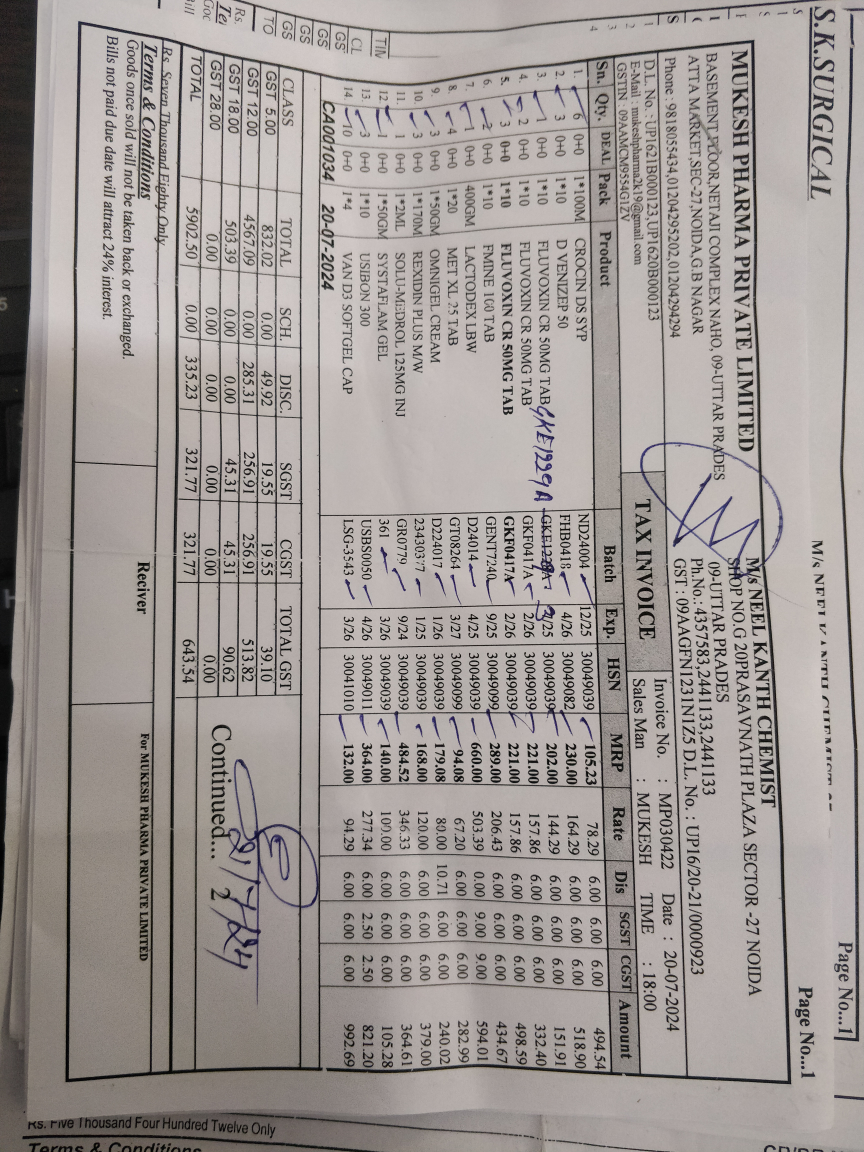 S.K.SURGICAL
M/s NEEL KANTH CHEMIST
Page No...1
Page No...1
MUKESH PHARMA PRIVATE LIMITED
BASEMENT FLOOR,NETAJI COMPLEX NAHO, 09-UTTAR PRADES
ATTA MARKET,SEC-27,NOIDA,G.B NAGAR
Phone : 9818055434,01204295202,01204294294
D.L. No. : UP1621B000123,UP1620B000123
E-Mail : mukeshpharma2k19@gmail.com
GSTIN : 09AAMCM9554G1ZV
TAX INVOICE
M/s NEEL KANTH CHEMIST
SHOP NO.G 20PRASAVNATH PLAZA SECTOR -27 NOIDA
09-UTTAR PRADES
Ph.No.: 4357583,2441133,2441133
GST : 09AAGFN1231N1Z5 D.L. No. : UP16/20-21/0000923
Invoice No. : MP030422 Date : 20-07-2024
Sales Man : MUKESH TIME : 18:00
Sn. Qty. DEAL Pack Product Batch Exp. HSN MRP Rate Dis SGST CGST Amount
1. 6 0+0 1*100M CROCIN DS SYP ND24004 12/25 30049039 105.23 78.29 6.00 6.00 6.00 494.54
2. 3 0+0 1*10 D VENIZEP 50 FHB0418 4/26 30049082 230.00 164.29 6.00 6.00 6.00 518.90
3. 1 0+0 1*10 FLUVOXIN CR 50MG TAB GKE1229A 2/25 30049039 202.00 144.29 6.00 6.00 6.00 151.91
4. 2 0+0 1*10 FLUVOXIN CR 50MG TAB GKF0417A 2/26 30049039 221.00 157.86 6.00 6.00 6.00 332.40
5. 3 0+0 1*10 FLUVOXIN CR 50MG TAB GKF0417A 2/26 30049039 221.00 157.86 6.00 6.00 6.00 498.59
6. 2 0+0 1*10 FMINE 100 TAB GENT7240 9/25 30049099 289.00 206.43 6.00 6.00 6.00 434.67
7. 1 0+0 400GM LACTODEX LBW D24014 4/25 30049039 660.00 503.39 0.00 9.00 9.00 594.01
8. 4 0+0 1*20 MET XL 25 TAB GT08264 3/27 30049099 94.08 67.20 6.00 6.00 6.00 282.99
9. 3 0+0 1*50GM OMNIGEL CREAM D224017 1/26 30049039 179.08 80.00 10.71 6.00 6.00 240.02
10. 3 0+0 1*170M REXIDIN PLUS M/W 23430377 1/25 30049039 168.00 120.00 6.00 6.00 6.00 379.00
11. 1 0+0 1*2ML SOLU-MEDROL 125MG INJ GR0779 9/24 30049039 484.52 346.33 6.00 6.00 6.00 364.61
12. 1 0+0 1*50GM SYSTAFLAM GEL 361 3/26 30049039 140.00 100.00 6.00 6.00 6.00 105.28
13. 3 0+0 1*10 USIBON 300 USBS0050 4/26 30049011 364.00 277.34 6.00 2.50 2.50 821.20
14. 10 0+0 1*4 VAN D3 SOFTGEL CAP LSG-3543 3/26 30041010 132.00 94.29 6.00 6.00 6.00 992.69
CA001034 20-07-2024
CLASS TOTAL SCH. DISC. SGST CGST TOTAL GST
GST 5.00 832.02 0.00 49.92 19.55 19.55 39.10
GST 12.00 4567.09 0.00 285.31 256.91 256.91 513.82
GST 18.00 503.39 0.00 0.00 45.31 45.31 90.62
GST 28.00 0.00 0.00 0.00 0.00 0.00 0.00
TOTAL 5902.50 0.00 335.23 321.77 321.77 643.54
Continued...
21/7/24
Rs. Seven Thousand Eighty Only
Terms & Conditions
Goods once sold will not be taken back or exchanged.
Bills not paid due date will attract 24% interest.
Reciver
For MUKESH PHARMA PRIVATE LIMITED
Rs. Five Thousand Four Hundred Twelve Only
Terms & Conditions